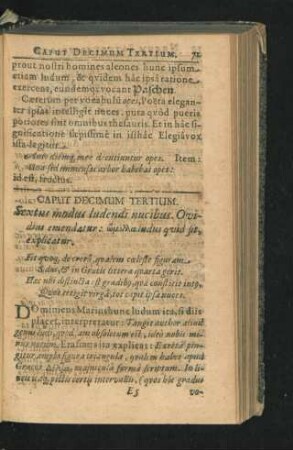 CAPUT DECIMUM TERTIUM. 71
prout nostri homines aleones hunc ipsum
etiam ludum, & quidem hac ipsa ratione
exercent, eundemque vocant Paschen.
Cæterum per vocabulũ opes, Poëta elegan-
ter ipsas intelligit nuces: puta quòd pueris
potiores sint omnibus thesauris. Et in hac si-
gnificatione sæpissimè in istihac Elegia vox
ista legitur.
opes. Item:
habebat opes:
id est, fructus.
CAPUT DECIMUM TERTIUM.
Sextus modus ludendi nucibus. Ovi-
dius emendatur: ludus quid sit,
explicatur.
Fit quoque de creta, qualem cæleste figuram
Sidus, & in Græcis littera quarta gerit.
Hæc ubi distincta est gradibus, qui constitit intus,
Quot tetigit virga, tot capit ipsa nuces.
DOminicus Marius hunc ludum ita, si diis
placet, interpretatur: Tangit author aliud
genus ludi, quod, cum obsoletum est, ideo nobis mi-
nus notum. Erasmus ita explicat: Exeretâ pin-
gitur, ampla figura triangula, qualem habet apud
Græcos Δέλτα, majuscula forma scriptum. In li-
nea ducta, pictis certis intervallis, (quos hic gradus
E 5 vo-